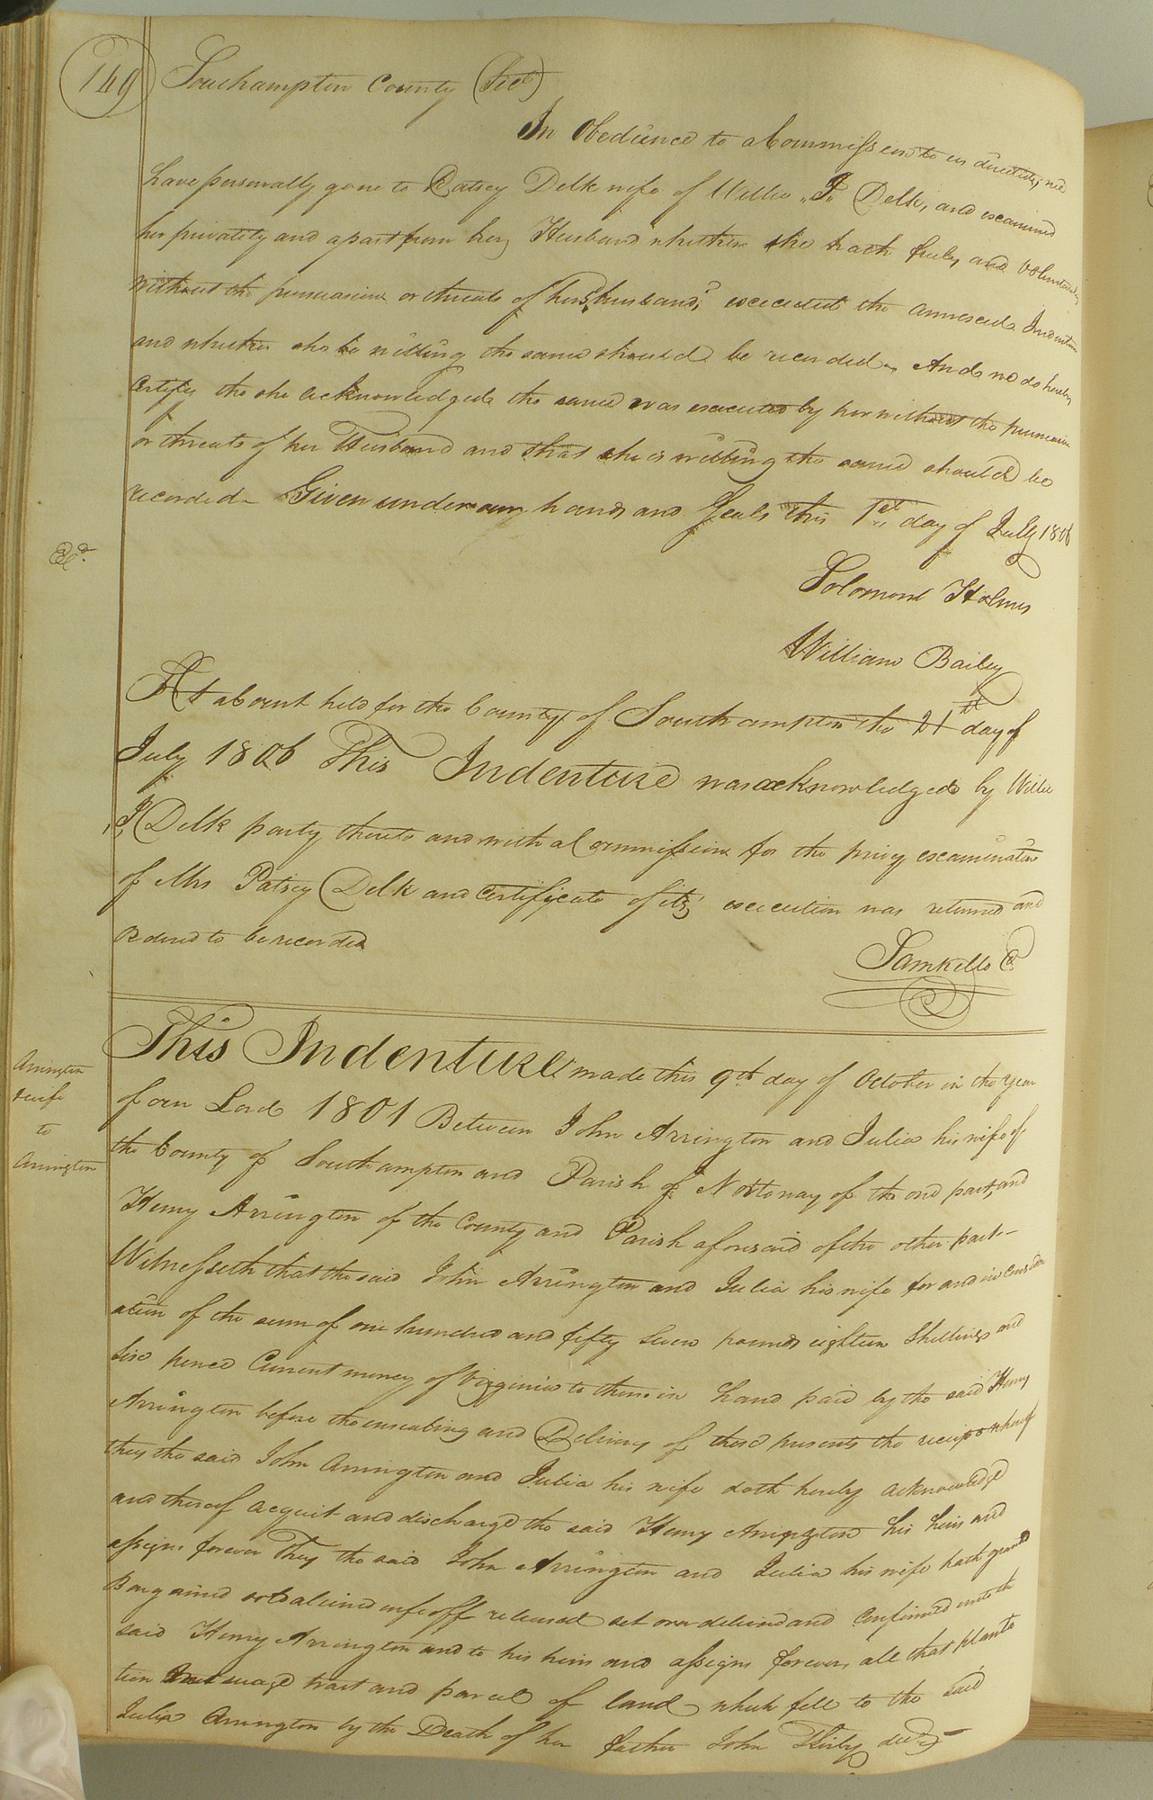 749 Southampton County (Sct)
In Obedience to a Commission to us directed, we
have personally gone to Patsey Delk wife of Willie J. Delk, and examined
her privately and apart from her Husband whether she hath freely and Voluntarily
without the persuasions or threats of her husband, executed the annexed Indenture
and whether she be willing the same should be recorded. And we do hereby
Certify the she acknowledged the same was executed by her without the persuasion
or threats of her Husband and that she is willing the same should be
recorded. Given under our hands and Seals this 1st day of July 1806
Exd.
Solomon Holmes
William Bailey
At a Court held for the County of Southampton the 21st day of
July 1806 This Indenture was acknowledged by Willie
J Delk party thereto and with a Commission for the privy examination
of Mrs Patsey Delk and Certificate of its execution was returned and
Ordered to be recorded
Sam Kello C.
Arrington
& wife
to
Arrington
This Indenture made this 9th day of October in the Year
of our Lord 1801 Between John Arrington and Julia his wife of
the County of Southampton and Parish of Nottoway of the one part, and
Henry Arrington of the County and Parish aforesaid of the other part
Witnesseth that the said John Arrington and Julia his wife for and in Consider
ation of the sum of one hundred and fifty seven pounds eighteen Shillings and
Six pence Current money of Virginia to them in hand paid by the said Henry
Arrington before the ensealing and Delivery of these presents the receipt whereof
they the said John Arrington and Julia his wife doth hereby acknowledge
and thereof acquit and discharge the said Henry Arrington his heirs and
assigns forever They the said John Arrington and Julia his wife hath granted
Bargained sold aliened enfeoff released set over deliver and Confirmed unto the
said Henry Arrington and to his heirs and assigns forever, all that planta
tion Messuage tract and parcel of land which fell to the said
Julia Arrington by the Death of her father John Kirby decd